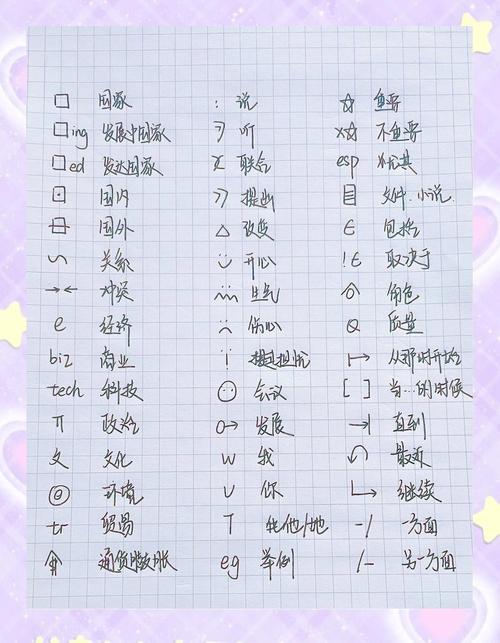 □ 国家 : 说 ☆ 重要
□ing 发展中国家 听 x☆ 不重要
□ed 发达国家 联合 esp 尤其
⊡ 国内 提出 文件.小说
国外 △ 改变 ∈ 包括
∽ 关系 开心 !∈ 取决于
→← 冲突 生气 角色
e 经济 伤心 Q 质量
biz 商业 担忧 ↦ 从那时开始
tech 科技 会议 [ ] 当...的时候
π 政治 o→ 发展 →| 直到
文 文化 w 我 最近
@ 环境 u 你 继续
tr 贸易 T 其他/她 -/ 一方面
通货膨胀 eg 举例 /- 另一方面